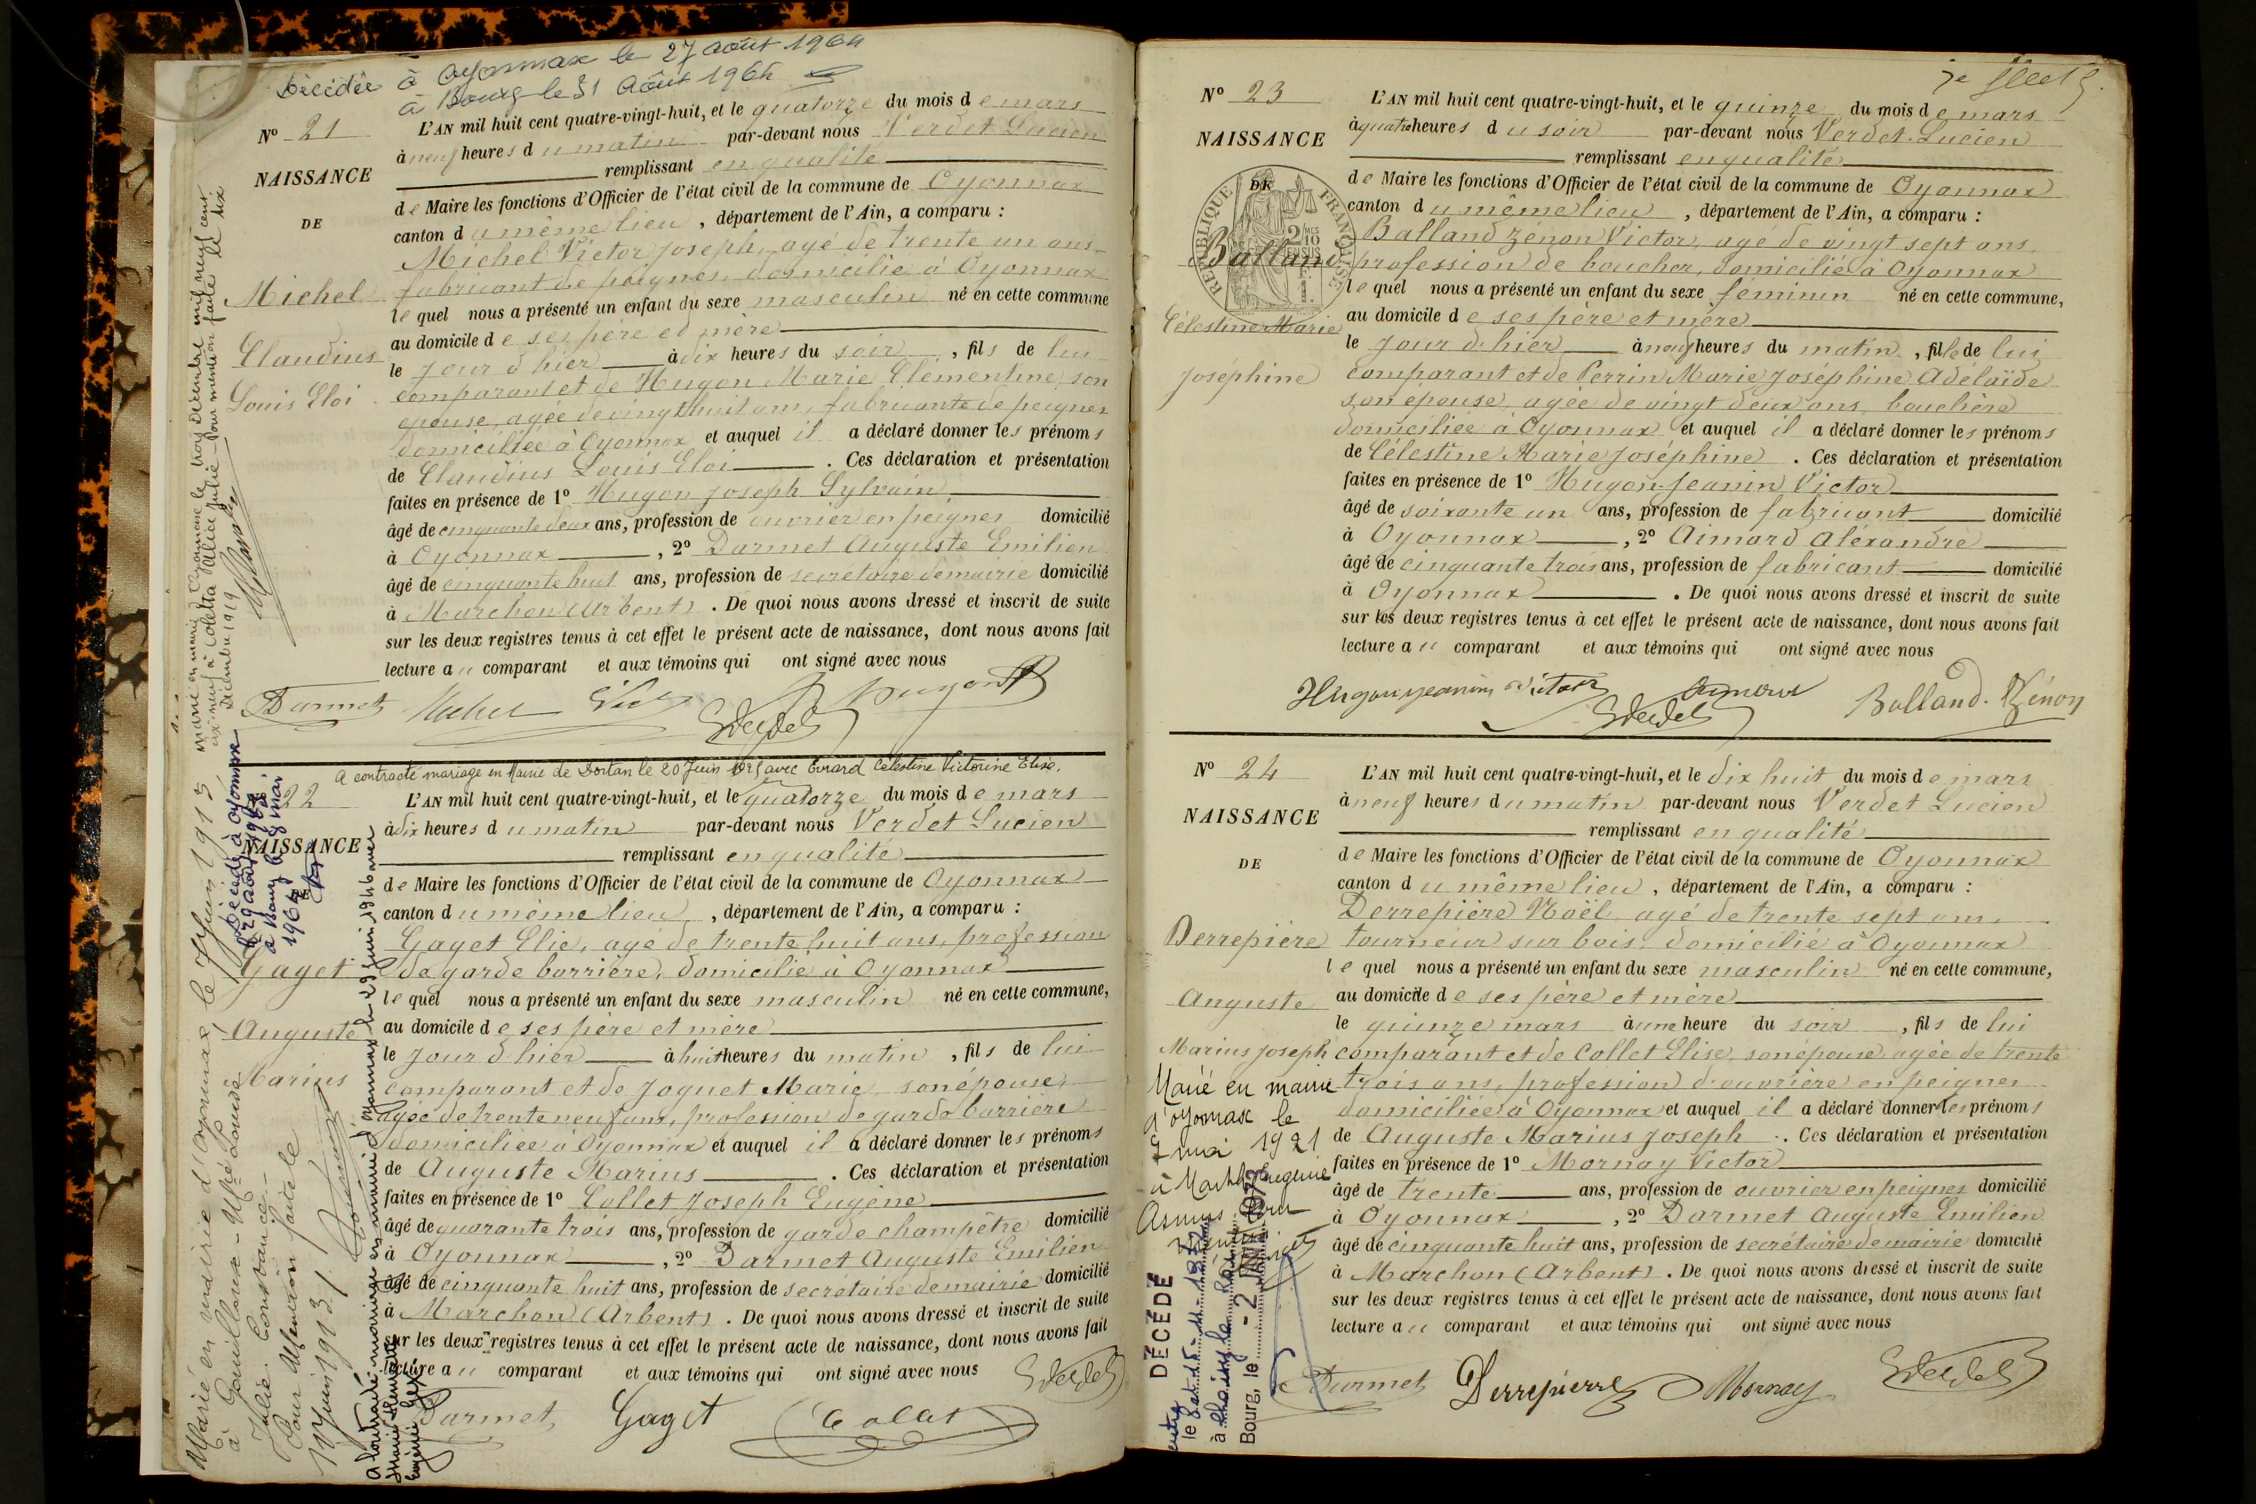 Décédée à Oyonnax le 27 août 1964
à Bourg le 31 Août 1964
N° 21
NAISSANCE
DE
Michel
Claudius
Louis Eloi
L'AN mil huit cent quatre-vingt-huit, et le quatorze du mois de mars
à neuf heures du matin par-devant nous Verdet Lucien
remplissant en qualité
de Maire les fonctions d'Officier de l'état civil de la commune de Oyonnax
canton du même lieu, département de l'Ain, a comparu :
Michel Victor Joseph, agé de trente un ans
fabricant de peignes, domicilié à Oyonnax
lequel nous a présenté un enfant du sexe masculin né en cette commune
au domicile de ses père et mère
le jour d'hier à dix heures du soir, fils de lui
comparant et de Hugon Marie Clémentine, son
épouse, agée de vingt huit ans, fabricante de peignes
domiciliée à Oyonnax et auquel il a déclaré donner les prénoms
de Claudius Louis Eloi. Ces déclaration et présentation
faites en présence de 1° Hugon Joseph Sylvain
âgé de cinquante deux ans, profession de ouvrier en peignes domicilié
à Oyonnax, 2° Darmet Auguste Emilien
âgé de cinquante huit ans, profession de secrétaire de mairie domicilié
à Marchon (Arbent). De quoi nous avons dressé et inscrit de suite
sur les deux registres tenus à cet effet le présent acte de naissance, dont nous avons fait
lecture au comparant et aux témoins qui ont signé avec nous
Darmet Michel Hugon
Marié en mairie d'Oyonnax le trois Décembre mil neuf cent
dix neuf à Coletta Alice Julie. Pour mention faite le dix
Décembre 1919
A contracté mariage en Mairie de Dortan le 20 Juin avec Evrard Célestine Victorine Elise.
22
NAISSANCE
Gaget
Auguste
Marius
L'AN mil huit cent quatre-vingt-huit, et le quatorze du mois de mars
à dix heures du matin par-devant nous Verdet Lucien
remplissant en qualité
de Maire les fonctions d'Officier de l'état civil de la commune de Oyonnax
canton du même lieu, département de l'Ain, a comparu :
Gaget Elie, agé de trente huit ans, profession
de garde barrière, domicilié à Oyonnax
lequel nous a présenté un enfant du sexe masculin né en cette commune,
au domicile de ses père et mère
le jour d'hier à huit heures du matin, fils de lui
comparant et de Joguet Marie, son épouse,
agée de trente neuf ans, profession de garde barrière
domiciliée à Oyonnax et auquel il a déclaré donner les prénoms
de Auguste Marius. Ces déclaration et présentation
faites en présence de 1° Collet Joseph Eugène
âgé de quarante trois ans, profession de garde champêtre domicilié
à Oyonnax, 2° Darmet Auguste Emilien
âgé de cinquante huit ans, profession de secrétaire de mairie domicilié
à Marchon (Arbent). De quoi nous avons dressé et inscrit de suite
sur les deux registres tenus à cet effet le présent acte de naissance, dont nous avons fait
lecture au comparant et aux témoins qui ont signé avec nous
Darmet Gaget Collet
Marié en mairie d'Oyonnax le 7 Juin 1913
à Gouilloux Louise
Julie Constance
Pour mention faite le
Juin 1913
Décédé à Oyonnax
A contracté mariage en mairie d'Oyonnax le 29 juin 1946 avec
7e feuillet
N° 23
NAISSANCE
DE
RÉPUBLIQUE FRANÇAISE
Balland
Célestine Marie
Joséphine
L'AN mil huit cent quatre-vingt-huit, et le quinze du mois de mars
à quatre heures du soir par-devant nous Verdet Lucien
remplissant en qualité
de Maire les fonctions d'Officier de l'état civil de la commune de Oyonnax
canton du même lieu, département de l'Ain, a comparu :
Balland Zénon Victor, agé de vingt sept ans
profession de boucher, domicilié à Oyonnax
lequel nous a présenté un enfant du sexe féminin né en cette commune,
au domicile de ses père et mère
le jour d'hier à neuf heures du matin, fille de lui
comparant et de Perrin Marie Joséphine Adélaïde
son épouse, agée de vingt deux ans, bouchère
domiciliée à Oyonnax et auquel il a déclaré donner les prénoms
de Célestine Marie Joséphine. Ces déclaration et présentation
faites en présence de 1° Hugon-Jeanin Victor
âgé de soixante un ans, profession de fabricant domicilié
à Oyonnax, 2° Aimard Aléxandre
âgé de cinquante trois ans, profession de fabricant domicilié
à Oyonnax. De quoi nous avons dressé et inscrit de suite
sur les deux registres tenus à cet effet le présent acte de naissance, dont nous avons fait
lecture au comparant et aux témoins qui ont signé avec nous
Hugonjeanin Victor Aymard Balland Zénon
N° 24
NAISSANCE
DE
Derrepière
Auguste
Marius Joseph
L'AN mil huit cent quatre-vingt-huit, et le dix huit du mois de mars
à neuf heures du matin par-devant nous Verdet Lucien
remplissant en qualité
de Maire les fonctions d'Officier de l'état civil de la commune de Oyonnax
canton du même lieu, département de l'Ain, a comparu :
Derrepière Noël, agé de trente sept ans,
tourneur sur bois, domicilié à Oyonnax
lequel nous a présenté un enfant du sexe masculin né en cette commune,
au domicile de ses père et mère
le quinze mars à une heure du soir, fils de lui
comparant et de Collet Elise, son épouse, agée de trente
trois ans, profession d'ouvrière en peignes
domiciliée à Oyonnax et auquel il a déclaré donner les prénoms
de Auguste Marius Joseph. Ces déclaration et présentation
faites en présence de 1° Mornay Victor
âgé de trente ans, profession de ouvrier en peignes domicilié
à Oyonnax, 2° Darmet Auguste Emilien
âgé de cinquante huit ans, profession de secrétaire de mairie domicilié
à Marchon (Arbent). De quoi nous avons dressé et inscrit de suite
sur les deux registres tenus à cet effet le présent acte de naissance, dont nous avons fait
lecture au comparant et aux témoins qui ont signé avec nous
Darmet Derrepierre Mornay
Marié en mairie
d'Oyonnax le
7 mai 1921
DÉCÉDÉ
Bourg, le - 2